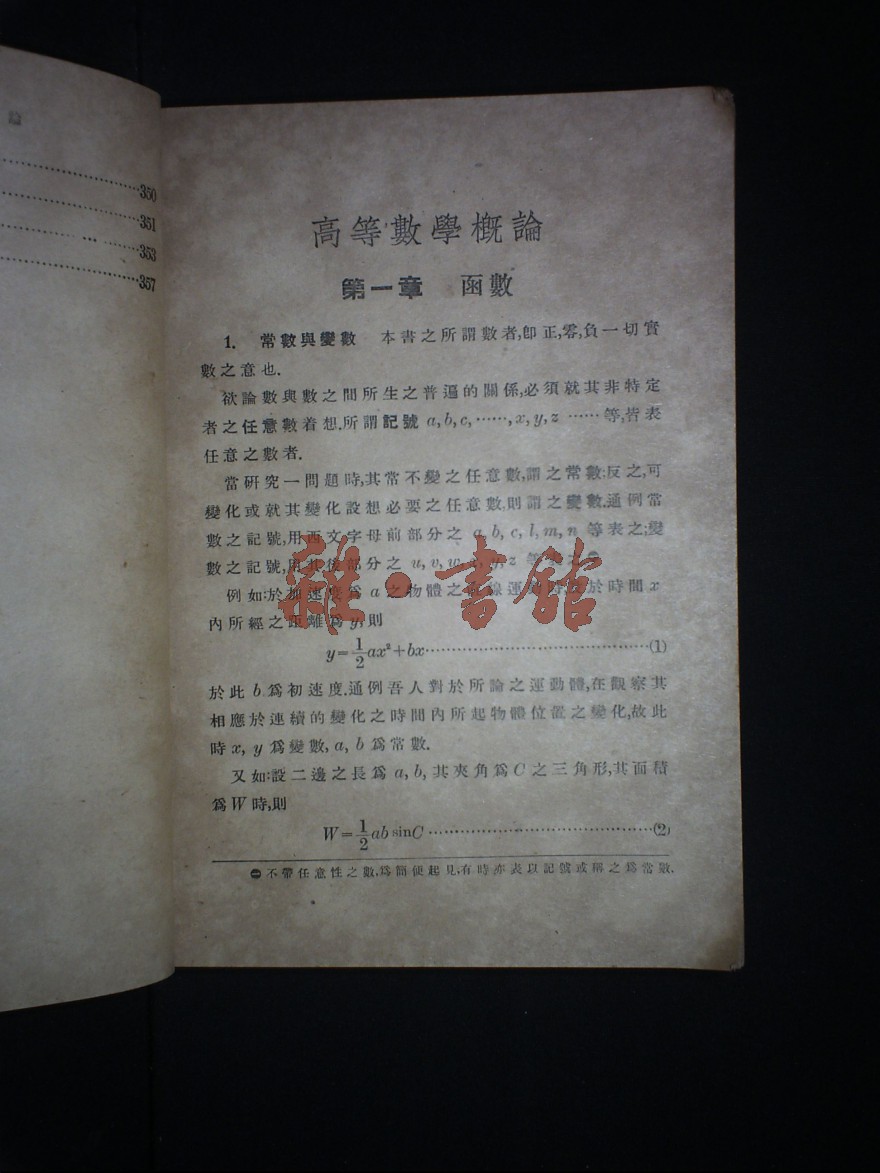 論
350
351
353
357
高等數學概論
第一章 函數
1. 常數與變數 本書之所謂數者,卽正,零,負一切實
數之意也.
欲論數與數之間所生之普遍的關係,必須就其非特定
者之任意數着想.所謂記號 a, b, c, ……, x, y, z …… 等,皆表
任意之數者.
當硏究一問題時,其常不變之任意數,謂之常數;反之,可
變化或就其變化設想必要之任意數,則謂之變數.通例常
數之記號,用西文字母前部分之 a, b, c, l, m, n 等表之;變
數之記號,用其後部分之 u, v, w, x, y, z 等表之
例如:於加速度爲 a 之物體之直線運動 於時間 x
內所經之距離爲 y, 則
y=½ax²+bx……………………………………(1)
於此 b 爲初速度.通例吾人對於所論之運動體,在觀察其
相應於連續的變化之時間內所起物體位置之變化,故此
時 x, y 爲變數, a, b 爲常數.
又如:設二邊之長爲 a, b, 其夾角爲 C 之三角形,其面積
爲 W 時,則
W=½ab sinC……………………………………(2)
㊀不帶任意性之數,爲簡便起見,有時亦表以記號或稱之爲常數.
雜·書館